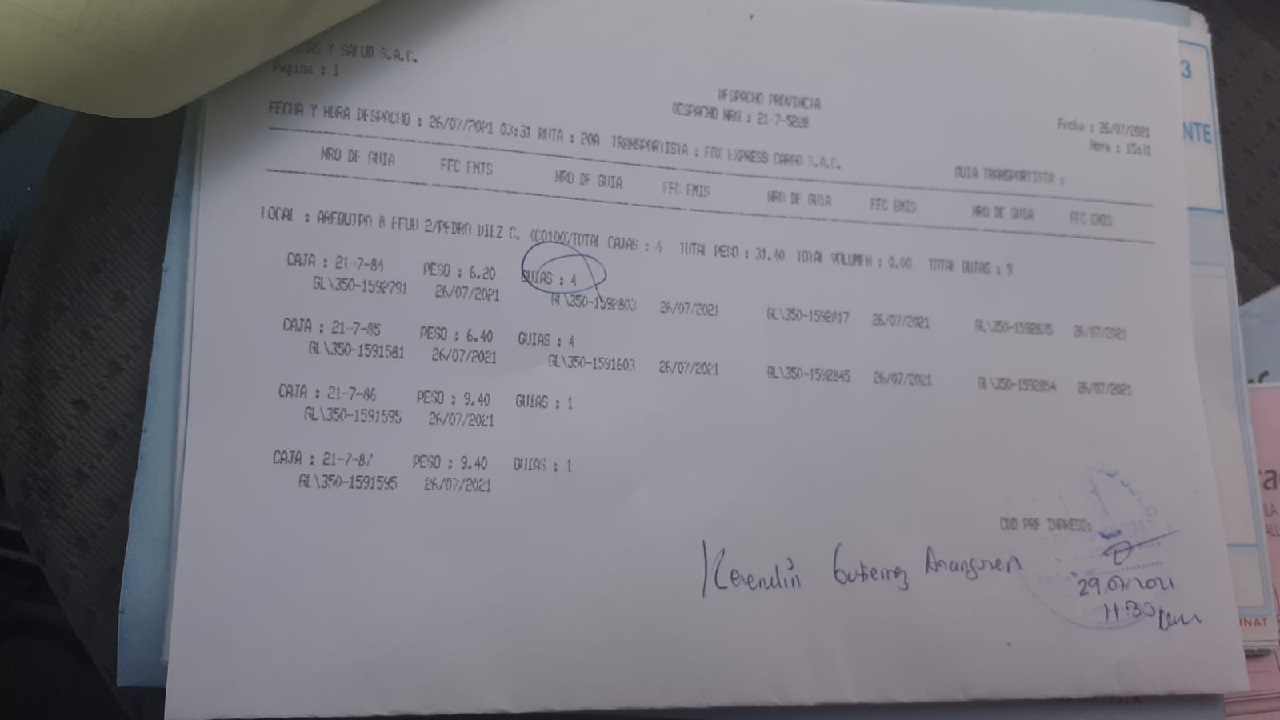 Y SALUD S.A.C.
Pagina : 1
DESPACHO PROVINCIA
DESPACHO NRO : 21-7-5228
Fecha : 26/07/2021
Hora : 15:31
FECHA Y HORA DESPACHO : 26/07/2021 03:31 RUTA : 20A TRANSPORTISTA : FOX EXPRESS CARGO S.A.C.
GUIA TRANSPORTISTA :
NRO DE GUIA FEC EMIS NRO DE GUIA FEC EMIS NRO DE GUIA FEC EMIS NRO DE GUIA FEC EMIS
LOCAL : AREQUIPA 8 FFUU 2/PEDRO DIEZ C. TOTAL CAJAS : 4 TOTAL PESO : 31.40 TOTAL VOLUMEN : 0.00 TOTAL GUIAS : 9
CAJA : 21-7-84 PESO : 6.20 GUIAS : 4
GL\350-1592791 26/07/2021 GL\350-1592803 26/07/2021 GL\350-1592817 26/07/2021 26/07/2021
CAJA : 21-7-85 PESO : 6.40 GUIAS : 4
GL\350-1591581 26/07/2021 GL\350-1591603 26/07/2021 GL\350-1592845 26/07/2021 GL\350-1592854 26/07/2021
CAJA : 21-7-86 PESO : 9.40 GUIAS : 1
GL\350-1591595 26/07/2021
CAJA : 21-7-87 PESO : 9.40 GUIAS : 1
GL\350-1591595 26/07/2021
COD PRF INGRESO:
Gutierrez Aranguren
29.07.2021
11:30 am
3
NTE
NAT